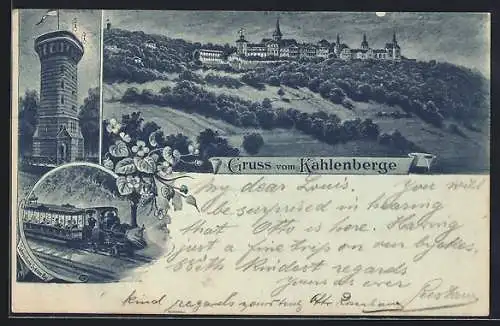 Gruss vom Kahlenberge
My dear Louis. You will
be surprised in hearing
that Otto is here. Having
just a fine trip on our bycles.
With kindest regards
Yours as ever
kind regards yours truly Otto